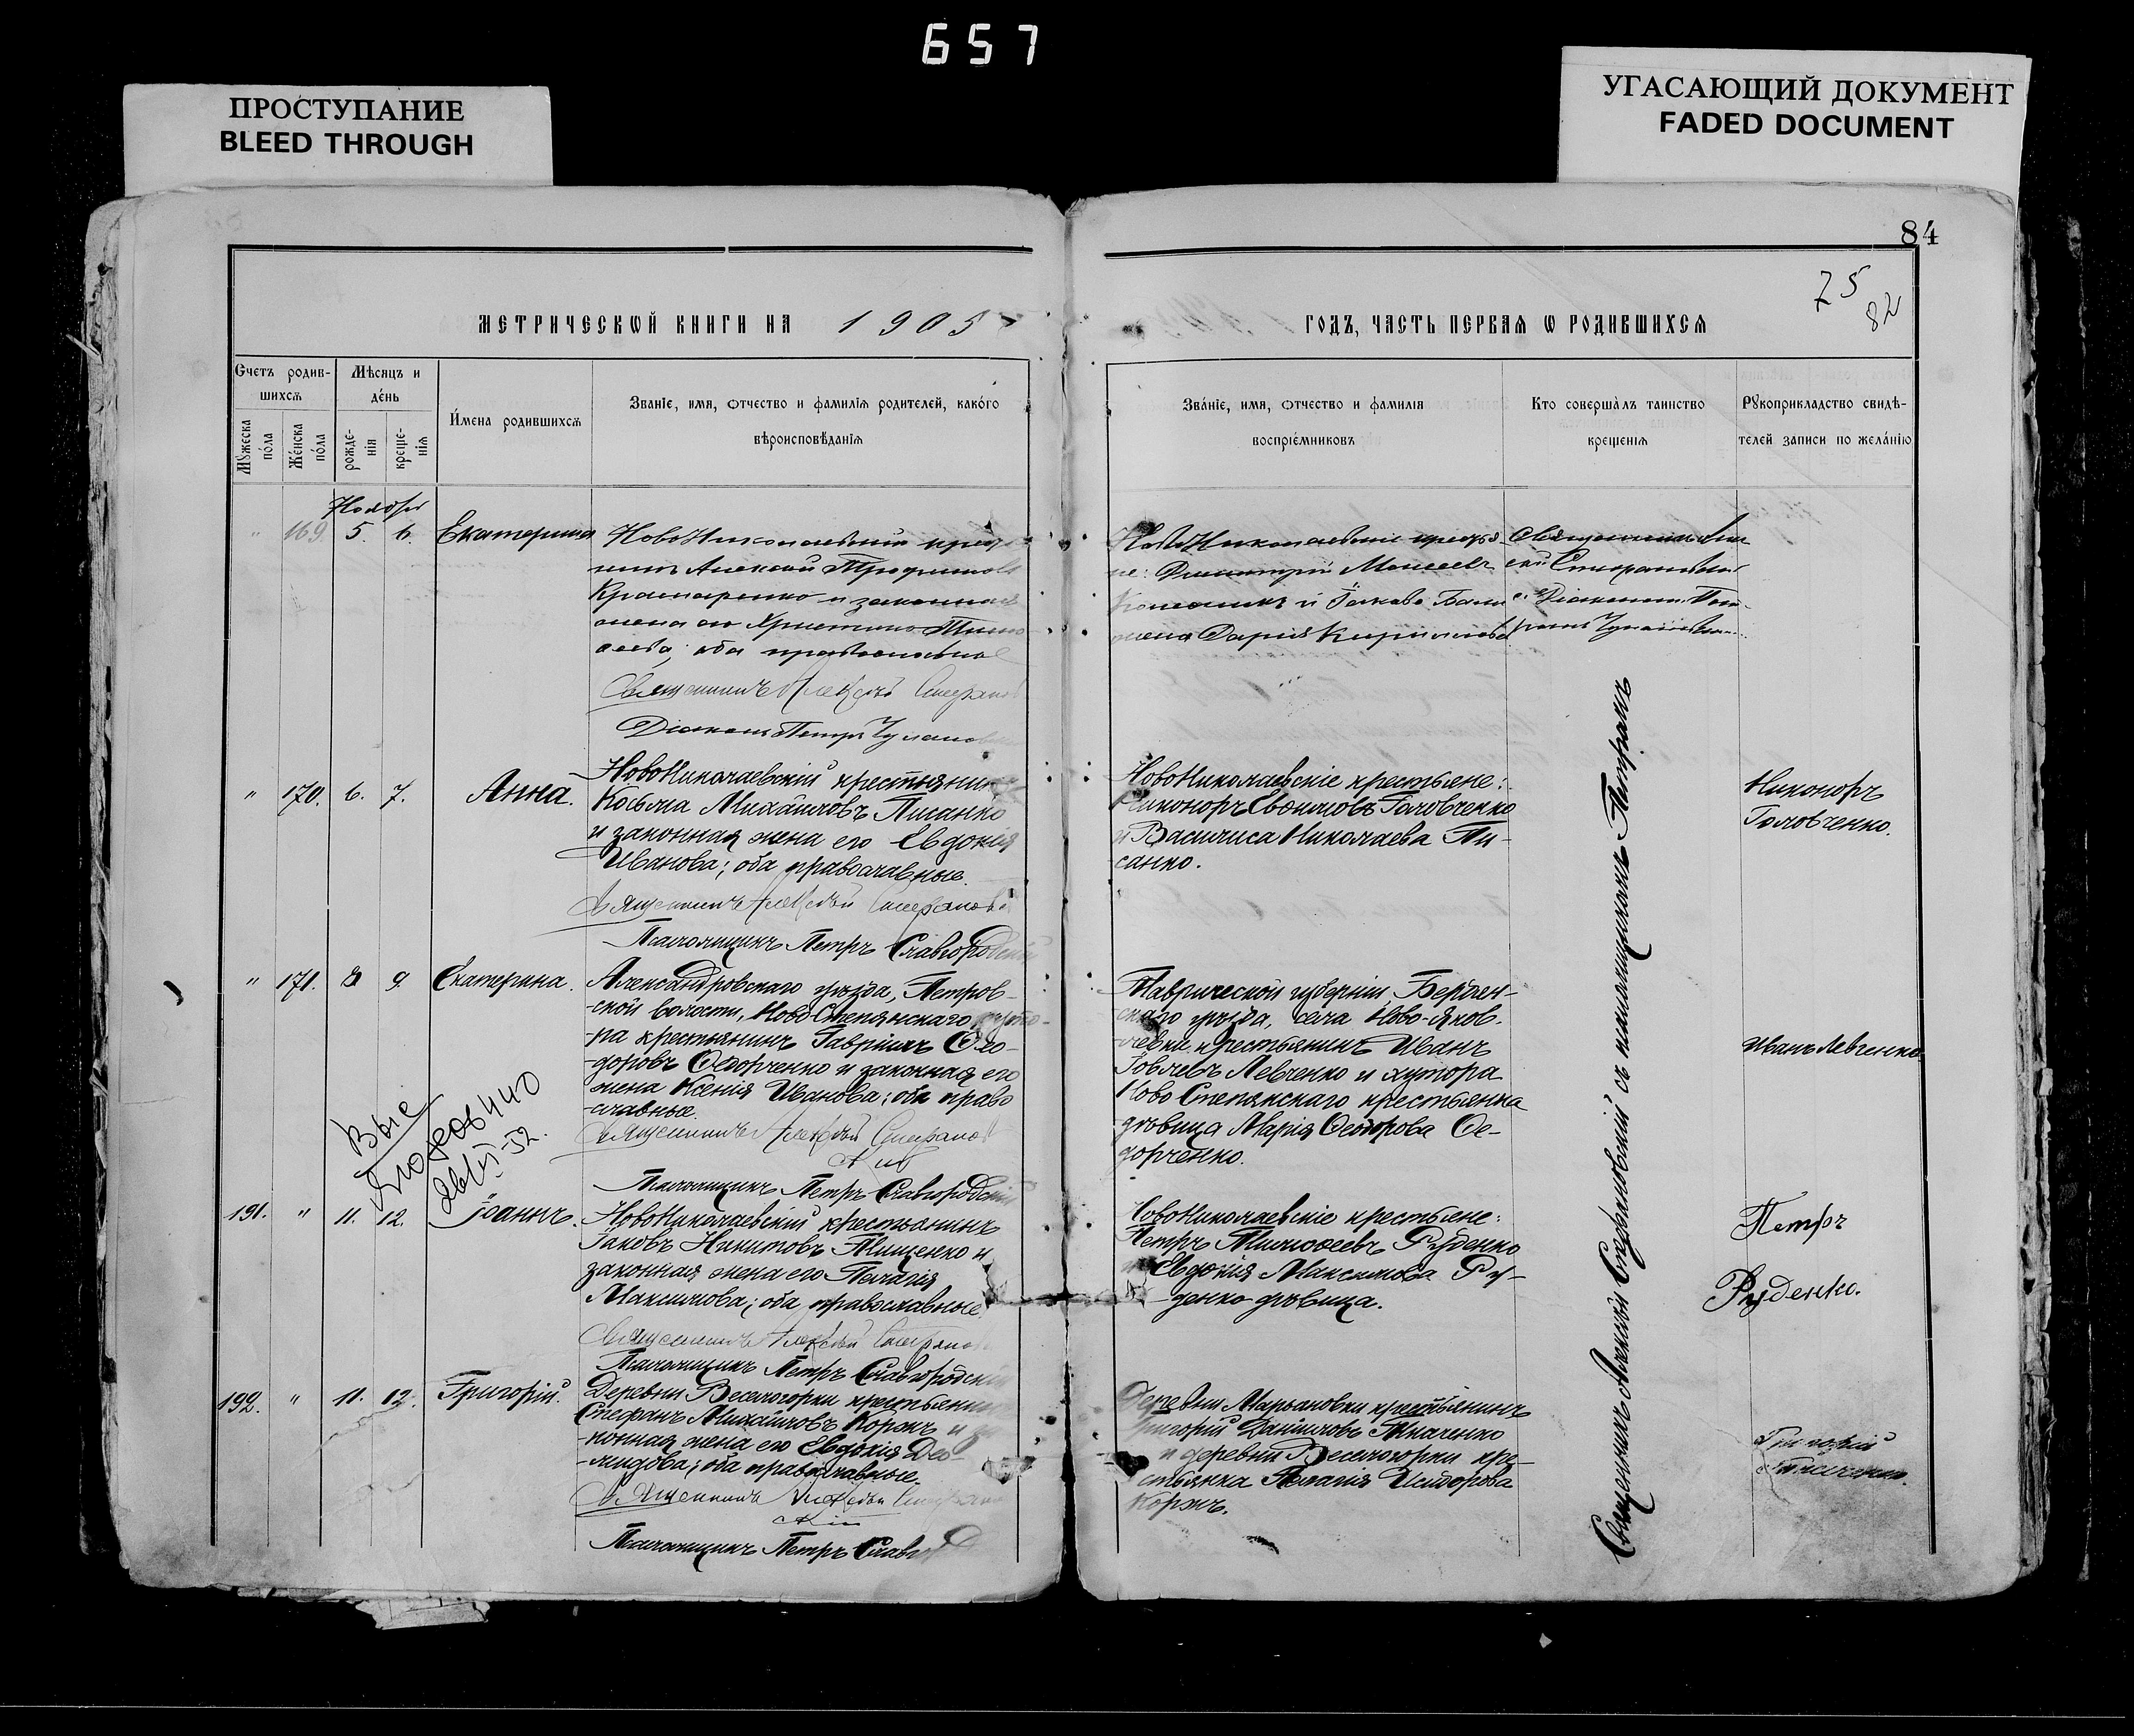 657
ПРОСТУПАНИЕ
BLEED THROUGH
УГАСАЮЩИЙ ДОКУМЕНТ
FADED DOCUMENT
84
75
82
МЕТРИЧЕСКѠЙ КНИГИ НА 1905
ГОДЪ, ЧАСТЬ ПЕРВАЯ Ѡ РОДИВШИХСЯ
Счетъ родив-
шихсѧ
Мꙋжеска пола
Женска пола
Мѣсяцъ и
день
рожде-
нія
креще-
нія
Имена родившихсѧ
Званіе, имя, ѻтчество и фамилія родителей, какого
вѣроисповѣданія
Званіе, имя, ѻтчество и фамилія
воспріемниковъ
Кто совершалъ таинство
крещенія
Рꙋкоприкладство свидѣ-
телей записи по желанію
Ноябрь
" 169. 5. 6. Екатерина
НовоНиколаевскій
Алексей Трофимовъ
и законная
жена его Христина
оба православные
Священникъ Алексѣй
Діаконъ Петръ
НовоНиколаевскіе
Димитрій Моисеевъ
и
жена Дарія Кириллова
Священникъ
Діакономъ
" 170. 6. 7. Анна.
НовоНиколаевскій крестьянинъ
Косьма Михайловъ Писанко
и законная жена его Евдокія
Иванова; оба православные.
Священникъ Алексѣй
Псаломщикъ Петръ Славгородскій
НовоНиколаевскіе крестьяне:
Никоноръ Евѳимовъ Головченко
и Василиса Николаева Пи-
санко.
Никоноръ
Головченко.
" 171. 8 9. Екатерина.
Александровскаго уѣзда, Петров-
-ской волости, Ново-Степянскаго хуто-
-ра крестьянинъ Гавріилъ Ѳео-
-доровъ Ѳедорченко и законная его
жена Ксенія Иванова; оба право
-славные.
Священникъ Алексѣй
Псаломщикъ Петръ Славгородскій
Таврической губерніи, Бердян-
скаго уѣзда, села Ново-Яков-
-левки крестьянинъ Иванъ
Іовлевъ Левченко и хутора
Ново Степянскаго крестьянка
дѣвица Марія Ѳеодорова Ѳе-
дорченко.
Иванъ Левченко
191. " 11. 12. Іоаннъ.
НовоНиколаевскій крестьянинъ
Іаковъ Никитовъ Тищенко и
законная жена его Пелагія
Максимова; оба православные.
Священникъ Алексѣй
Псаломщикъ Петръ Славгородскій
НовоНиколаевскіе крестьяне:
Петръ Тимоѳеевъ Руденко
и Евдокія Максимова Ру-
денко дѣвица.
Петръ
Руденко.
192. " 11. 12. Григорій.
Деревни Веселогорки крестьянинъ
Стефанъ Михайловъ Коржъ и за-
-конная жена его Евдокія Део-
-мидова; оба православные.
Священникъ Алексѣй
Псаломщикъ Петръ
Деревни Марьановки крестьянинъ
Григорій Даніиловъ Ткаченко
и деревни Веселогорки кре-
стьянка Пелагія Исидорова
Коржъ.
Григорій
Ткаченко.
Священникъ Алексѣй Стефановскій съ псаломщикомъ Петромъ